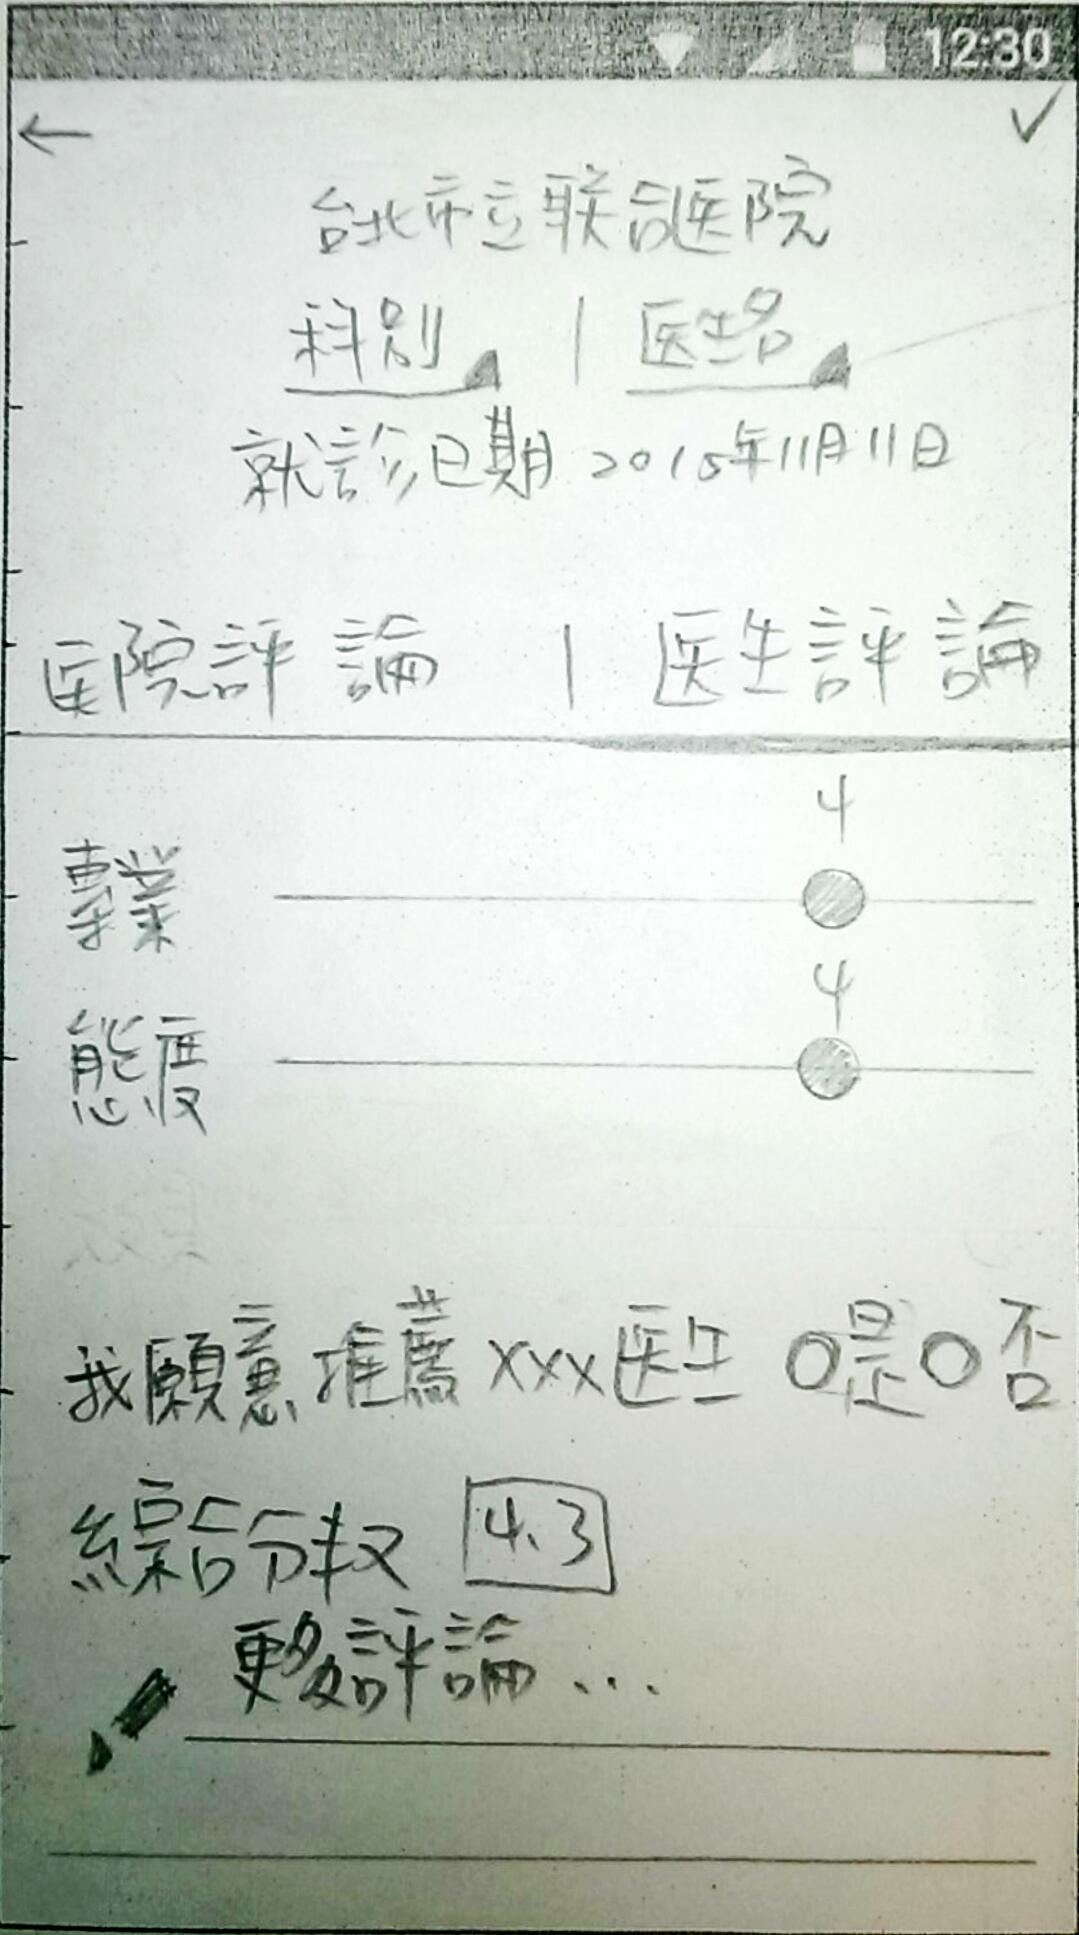 12:30
← ✓
台北市立联合医院
科別 | 医生名
就診日期 2015年11月11日
医院評論 | 医生評論
4
專業
4
態度
我願意推薦 xxx医生 O是O否
綜合分权 4.3
更多評論...